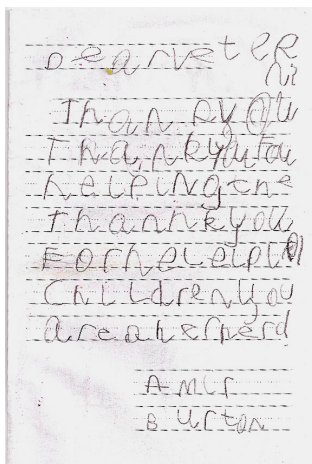 Dear veteR
n
Thank you
Thankyou for
helpingthe
thankyou
For heLelping
Children you
are an
Amir
Burton